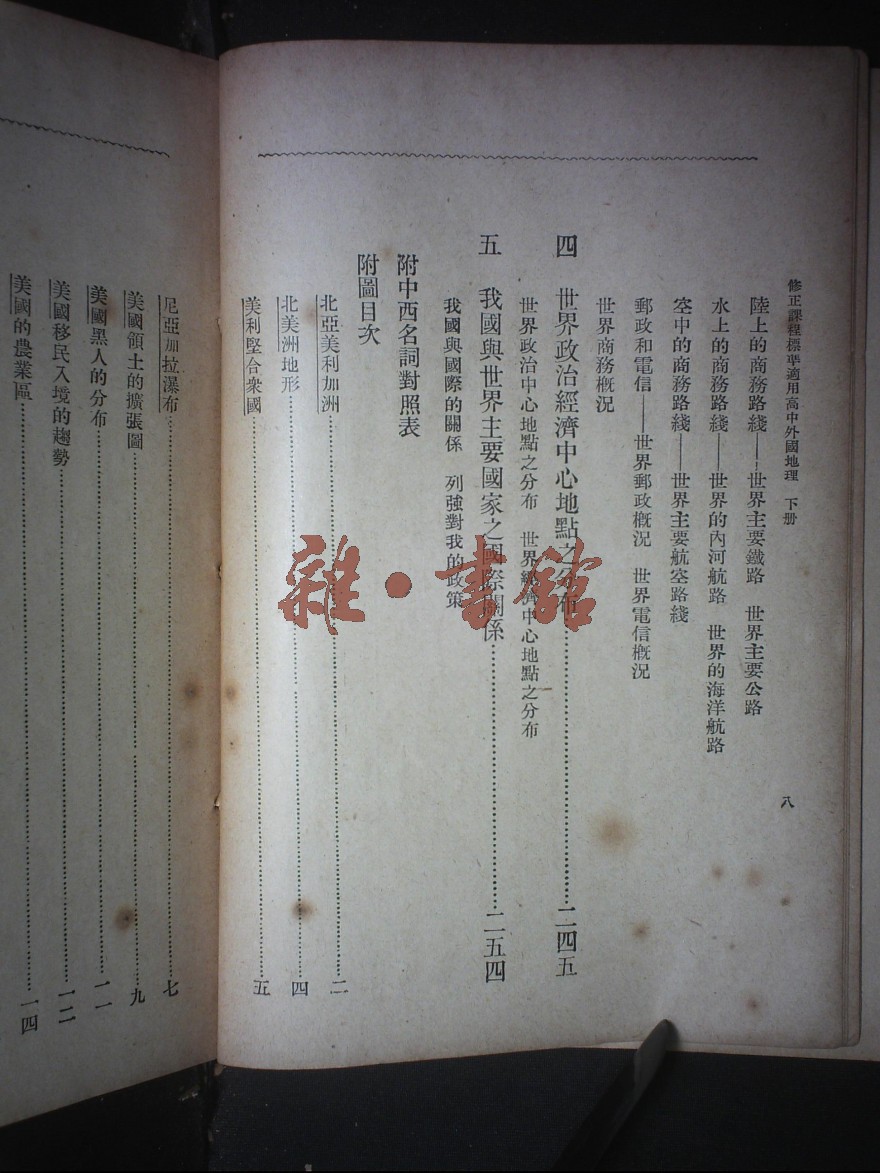 修正課程標準適用高中外國地理 下册
八
陸上的商務路綫——世界主要鐵路 世界主要公路
水上的商務路綫——世界的內河航路 世界的海洋航路
空中的商務路綫——世界主要航空路綫
郵政和電信——世界郵政概況 世界電信概況
世界商務概況
四 世界政治經濟中心地點之分布…………二四五
世界政治中心地點之分布 世界經濟中心地點之分布
五 我國與世界主要國家之國際關係…………二五四
我國與國際的關係 列強對我的政策
附中西名詞對照表
附圖目次
北亞美利加洲…………二
北美洲地形…………四
美利堅合衆國…………五
尼亞加拉瀑布…………七
美國領土的擴張圖…………九
美國黑人的分布…………一一
美國移民入境的趨勢…………一二
美國的農業區…………一四
雜·書館